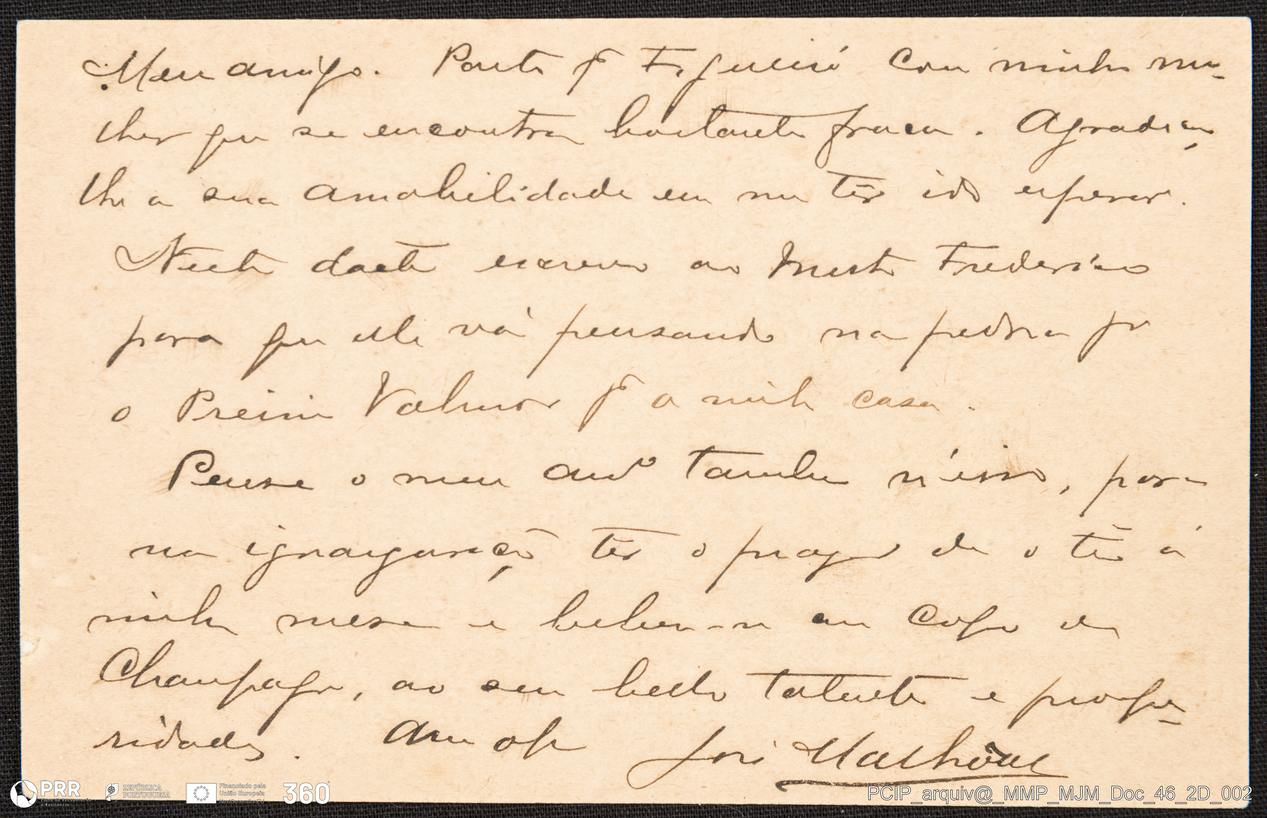 Meu amigo. Parto pª Figueiró com minha mu-
lher que se encontra bastante fraca. Agradeço
lhe a sua amabilidade em me ter ido esperar.
Nesta data escrevo ao Mestre Frederico
para que elle vá pensando na pedra pª
o Premio Valmor pª a minha casa.
Pense o meu amº tambem n'isso, para
na ignauguração ter o prazer de o ter á
minha mesa e beber-se um copo de
Champagne, ao seu bello talento e prospe-
ridades. Am obr José Malhoa
PRR
REPÚBLICA PORTUGUESA
Financiado pela União Europeia
360
PCIP_arquiv@_MMP_MJM_Doc_46_2D_002